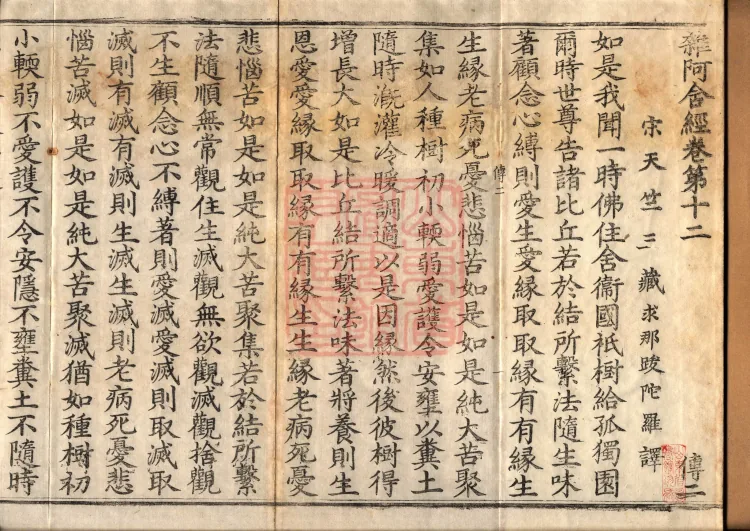 雜阿含經卷第十二 傳二
宋天竺三藏求那跋陀羅譯
如是我聞一時佛住舍衛國祇樹給孤獨園
爾時世尊告諸比丘若於結所繫法隨生味
著顧念心縛則愛生愛緣取取緣有有緣生
傳二
生緣老病死憂悲惱苦如是如是純大苦聚
集如人種樹初小輭弱愛護令安壅以糞土
隨時溉灌冷暖調適以是因緣然後彼樹得
增長大如是比丘結所繫法味著將養則生
恩愛愛緣取取緣有有緣生生緣老病死憂
悲惱苦如是如是純大苦聚集若於結所繫
法隨順無常觀住生滅觀無欲觀滅觀捨觀
不生顧念心不縛著則愛滅愛滅則取滅取
滅則有滅有滅則生滅生滅則老病死憂悲
惱苦滅如是如是純大苦聚滅猶如種樹初
小輭弱不愛護不令安隱不壅糞土不隨時